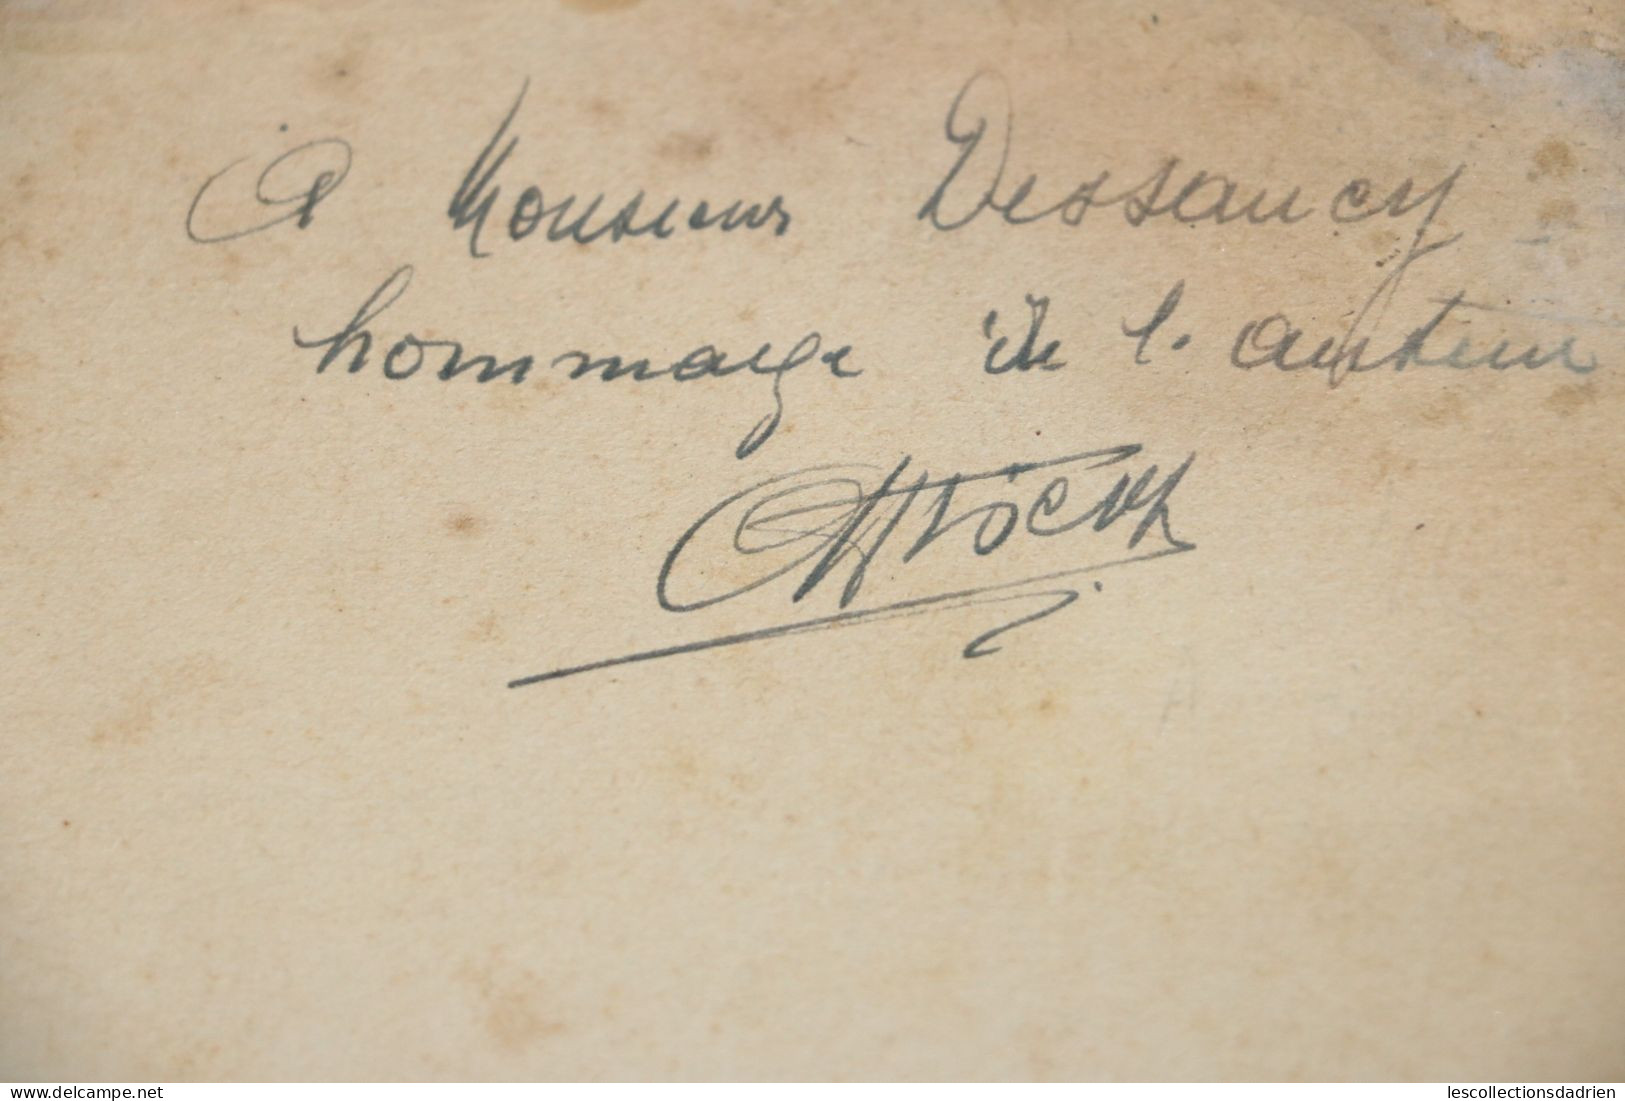 A Monsieur Dessancy
hommage de l'auteur
delcampe.net
lescollectionsdadrien